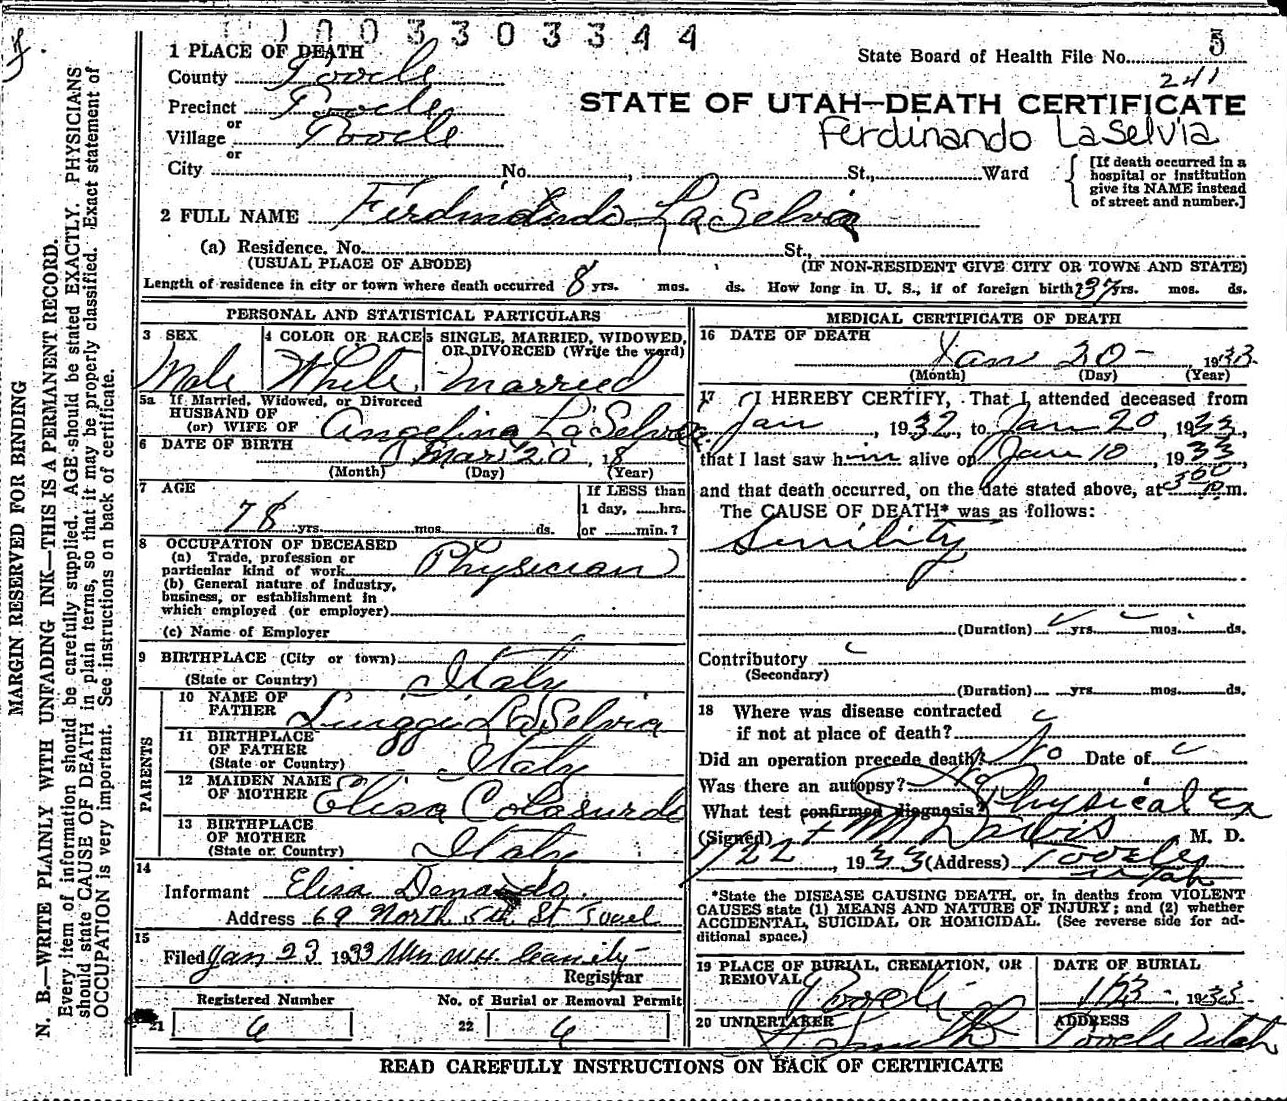 1003303344
1 PLACE OF DEATH
State Board of Health File No. 5
County Tooele
241
Precinct Tooele
STATE OF UTAH—DEATH CERTIFICATE
or
Village Tooele
Ferdinando LaSelvia
or
City No. , St., Ward
[If death occurred in a
hospital or institution
give its NAME instead
of street and number.]
2 FULL NAME Ferdinando LaSelvia
(a) Residence, No. St.,
(USUAL PLACE OF ABODE) (IF NON-RESIDENT GIVE CITY OR TOWN AND STATE)
Length of residence in city or town where death occurred 8 yrs. mos. ds. How long in U. S., if of foreign birth? 37 yrs. mos. ds.
PERSONAL AND STATISTICAL PARTICULARS
3 SEX
Male
4 COLOR OR RACE
White
5 SINGLE, MARRIED, WIDOWED,
OR DIVORCED (Write the word)
Married
5a If Married, Widowed, or Divorced
HUSBAND OF
(or) WIFE OF Angelina LaSelvia
6 DATE OF BIRTH Mar 20, 18
(Month) (Day) (Year)
7 AGE
78 yrs. mos. ds.
If LESS than
1 day, hrs.
or min.?
8 OCCUPATION OF DECEASED
(a) Trade, profession or
particular kind of work Physician
(b) General nature of Industry,
business, or establishment in
which employed (or employer)
(c) Name of Employer
9 BIRTHPLACE (City or town)
(State or Country) Italy
PARENTS
10 NAME OF
FATHER Luiggi LaSelvia
11 BIRTHPLACE
OF FATHER
(State or Country) Italy
12 MAIDEN NAME
OF MOTHER Elisa Colasurdo
13 BIRTHPLACE
OF MOTHER
(State or Country) Italy
14
Informant Elisa Donardo
Address 69 North 5th St Tooel
15
Filed Jan 23 1933 Mrs W.H.
Registrar
Registered Number
21 6
No. of Burial or Removal Permit
22 6
MEDICAL CERTIFICATE OF DEATH
16 DATE OF DEATH
Jan 20 - , 1933
(Month) (Day) (Year)
17 I HEREBY CERTIFY, That I attended deceased from
Jan , 1932, to Jan 20, 1933,
that I last saw him alive on Jan 10, 1933,
and that death occurred, on the date stated above, at 3:00 m.
The CAUSE OF DEATH* was as follows:
Senility
(Duration) yrs. mos. ds.
Contributory
(Secondary)
(Duration) yrs. mos. ds.
18 Where was disease contracted
if not at place of death?
Did an operation precede death? No Date of
Was there an autopsy? No
What test confirmed diagnosis? Physical Ex
(Signed) M Davis M. D.
1/22, 1933 (Address) Tooele
Utah
*State the DISEASE CAUSING DEATH, or, in deaths from VIOLENT
CAUSES state (1) MEANS AND NATURE OF INJURY; and (2) whether
ACCIDENTAL, SUICIDAL OR HOMICIDAL. (See reverse side for ad-
ditional space.)
19 PLACE OF BURIAL, CREMATION, OR
REMOVAL
Tooele
DATE OF BURIAL
1/23 , 1933
20 UNDERTAKER
Smith
ADDRESS
Tooele Utah
READ CAREFULLY INSTRUCTIONS ON BACK OF CERTIFICATE
MARGIN RESERVED FOR BINDING
N. B.—WRITE PLAINLY WITH UNFADING INK—THIS IS A PERMANENT RECORD.
Every item of information should be carefully supplied. AGE should be stated EXACTLY. PHYSICIANS
should state CAUSE OF DEATH in plain terms, so that it may be properly classified. Exact statement of
OCCUPATION is very important. See instructions on back of certificate.